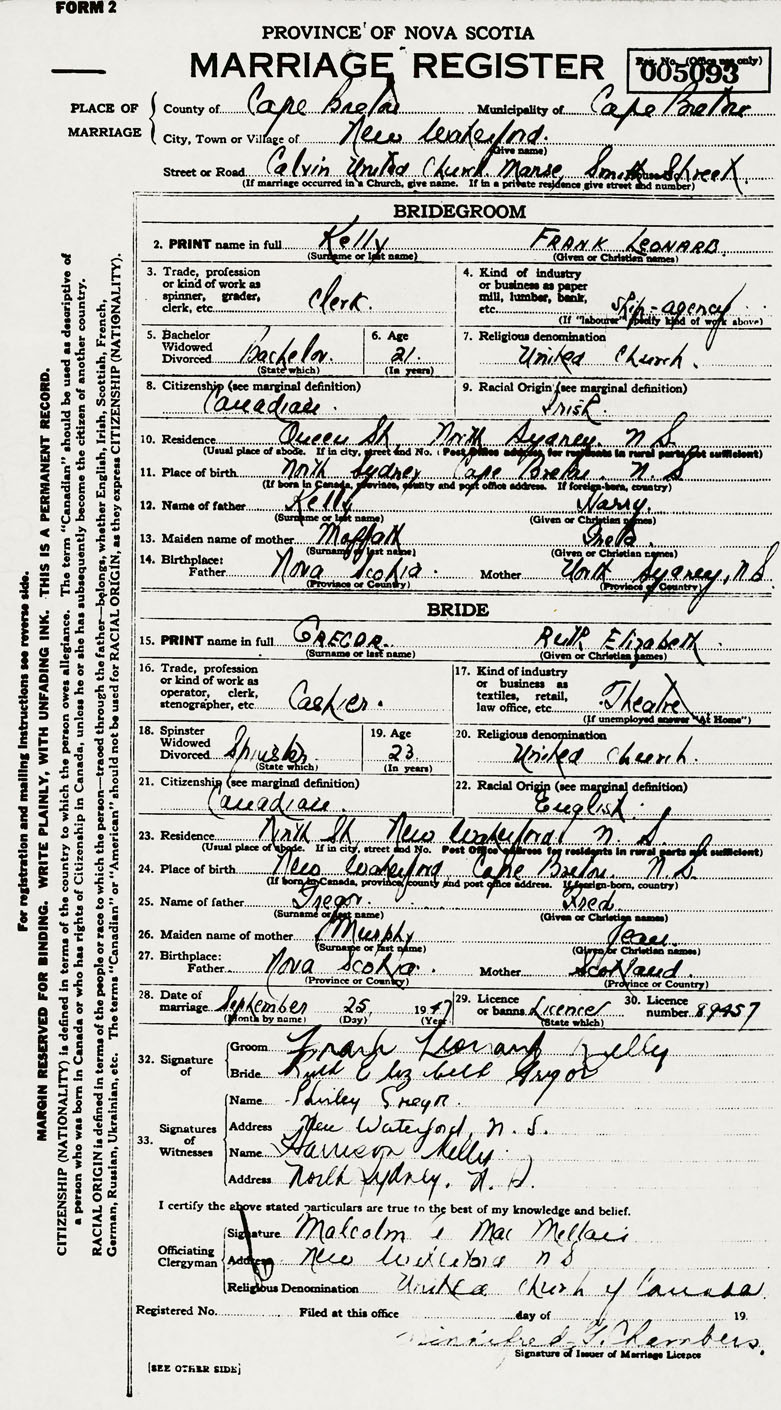 FORM 2
PROVINCE OF NOVA SCOTIA
MARRIAGE REGISTER
Reg. No. (Office use only)
005093
PLACE OF MARRIAGE
County of Cape Breton Municipality of Cape Breton
City, Town or Village of New Waterford.
(Give name)
Street or Road Calvin United Church Manse, Smith Street.
(If marriage occurred in a Church, give name. If in a private residence give street and number)
BRIDEGROOM
2. PRINT name in full Kelly FRANK LEONARD
(Surname or last name) (Given or Christian names)
3. Trade, profession or kind of work as spinner, grader, clerk, etc. Clerk.
4. Kind of industry or business as paper mill, lumber, bank, etc. Ship-agency
(If "labourer" specify kind of work above)
5. Bachelor Widowed Divorced Bachelor.
(State which)
6. Age 21.
(In years)
7. Religious denomination United Church.
8. Citizenship (see marginal definition) Canadian.
9. Racial Origin (see marginal definition) Irish.
10. Residence Queen St. North Sydney. N S.
(Usual place of abode. If in city, street and No. Post Office address for residents in rural parts not sufficient)
11. Place of birth North Sydney Cape Breton. N. S
(If born in Canada, province, county and post office address. If foreign-born, country)
12. Name of father Kelly Harry.
(Surname or last name) (Given or Christian names)
13. Maiden name of mother Moffatt
(Surname or last name) (Given or Christian names)
14. Birthplace: Father Nova Scotia. Mother North Sydney, N.S.
(Province or Country) (Province or Country)
BRIDE
15. PRINT name in full GREGOR. RUTH Elizabeth
(Surname or last name) (Given or Christian names)
16. Trade, profession or kind of work as operator, clerk, stenographer, etc Cashier.
17. Kind of industry or business as textiles, retail, law office, etc. Theatre
(If unemployed answer "At Home")
18. Spinster Widowed Divorced Spinster
(State which)
19. Age 23
(In years)
20. Religious denomination United Church.
21. Citizenship (see marginal definition) Canadian.
22. Racial Origin (see marginal definition) English.
23. Residence Ninth St. New Waterford, N. S.
(Usual place of abode. If in city, street and No. Post Office address for residents in rural parts not sufficient)
24. Place of birth New Waterford Cape Breton. N. S.
(If born in Canada, province, county and post office address. If foreign-born, country)
25. Name of father Gregor. Fred
(Surname or last name) (Given or Christian names)
26. Maiden name of mother Murphy Jean.
(Surname or last name) (Given or Christian names)
27. Birthplace: Father Nova Scotia. Mother Scotland.
(Province or Country) (Province or Country)
28. Date of marriage September 25, 1947
(Month by name) (Day) (Year)
29. Licence or banns Licence
(State which)
30. Licence number 89457
32. Signature of
Groom Frank Leonard Kelly
Bride Ruth Elizabeth Gregor
33. Signatures of Witnesses
Name Shirley Gregor.
Address New Waterford, N. S.
Name Harrison Kelly
Address North Sydney, N. S.
I certify the above stated particulars are true to the best of my knowledge and belief.
Officiating Clergyman
Signature Malcolm
Address New Waterford N S
Religious Denomination United Church of Canada
Registered No. Filed at this office day of 19.
Winnifred G. Chambers.
Signature of Issuer of Marriage Licence
[SEE OTHER SIDE]
For registration and mailing instructions see reverse side.
MARGIN RESERVED FOR BINDING. WRITE PLAINLY, WITH UNFADING INK. THIS IS A PERMANENT RECORD.
CITIZENSHIP (NATIONALITY) is defined in terms of the country to which the person owes allegiance. The term "Canadian" should be used as descriptive of
a person who was born in Canada or who has rights of Citizenship in Canada, unless he or she has subsequently become the citizen of another country.
RACIAL ORIGIN is defined in terms of the people or race to which the person—traced through the father—belongs, whether English, Irish, Scottish, French,
German, Russian, Ukrainian, etc. The terms "Canadian" or "American" should not be used for RACIAL ORIGIN, as they express CITIZENSHIP (NATIONALITY).